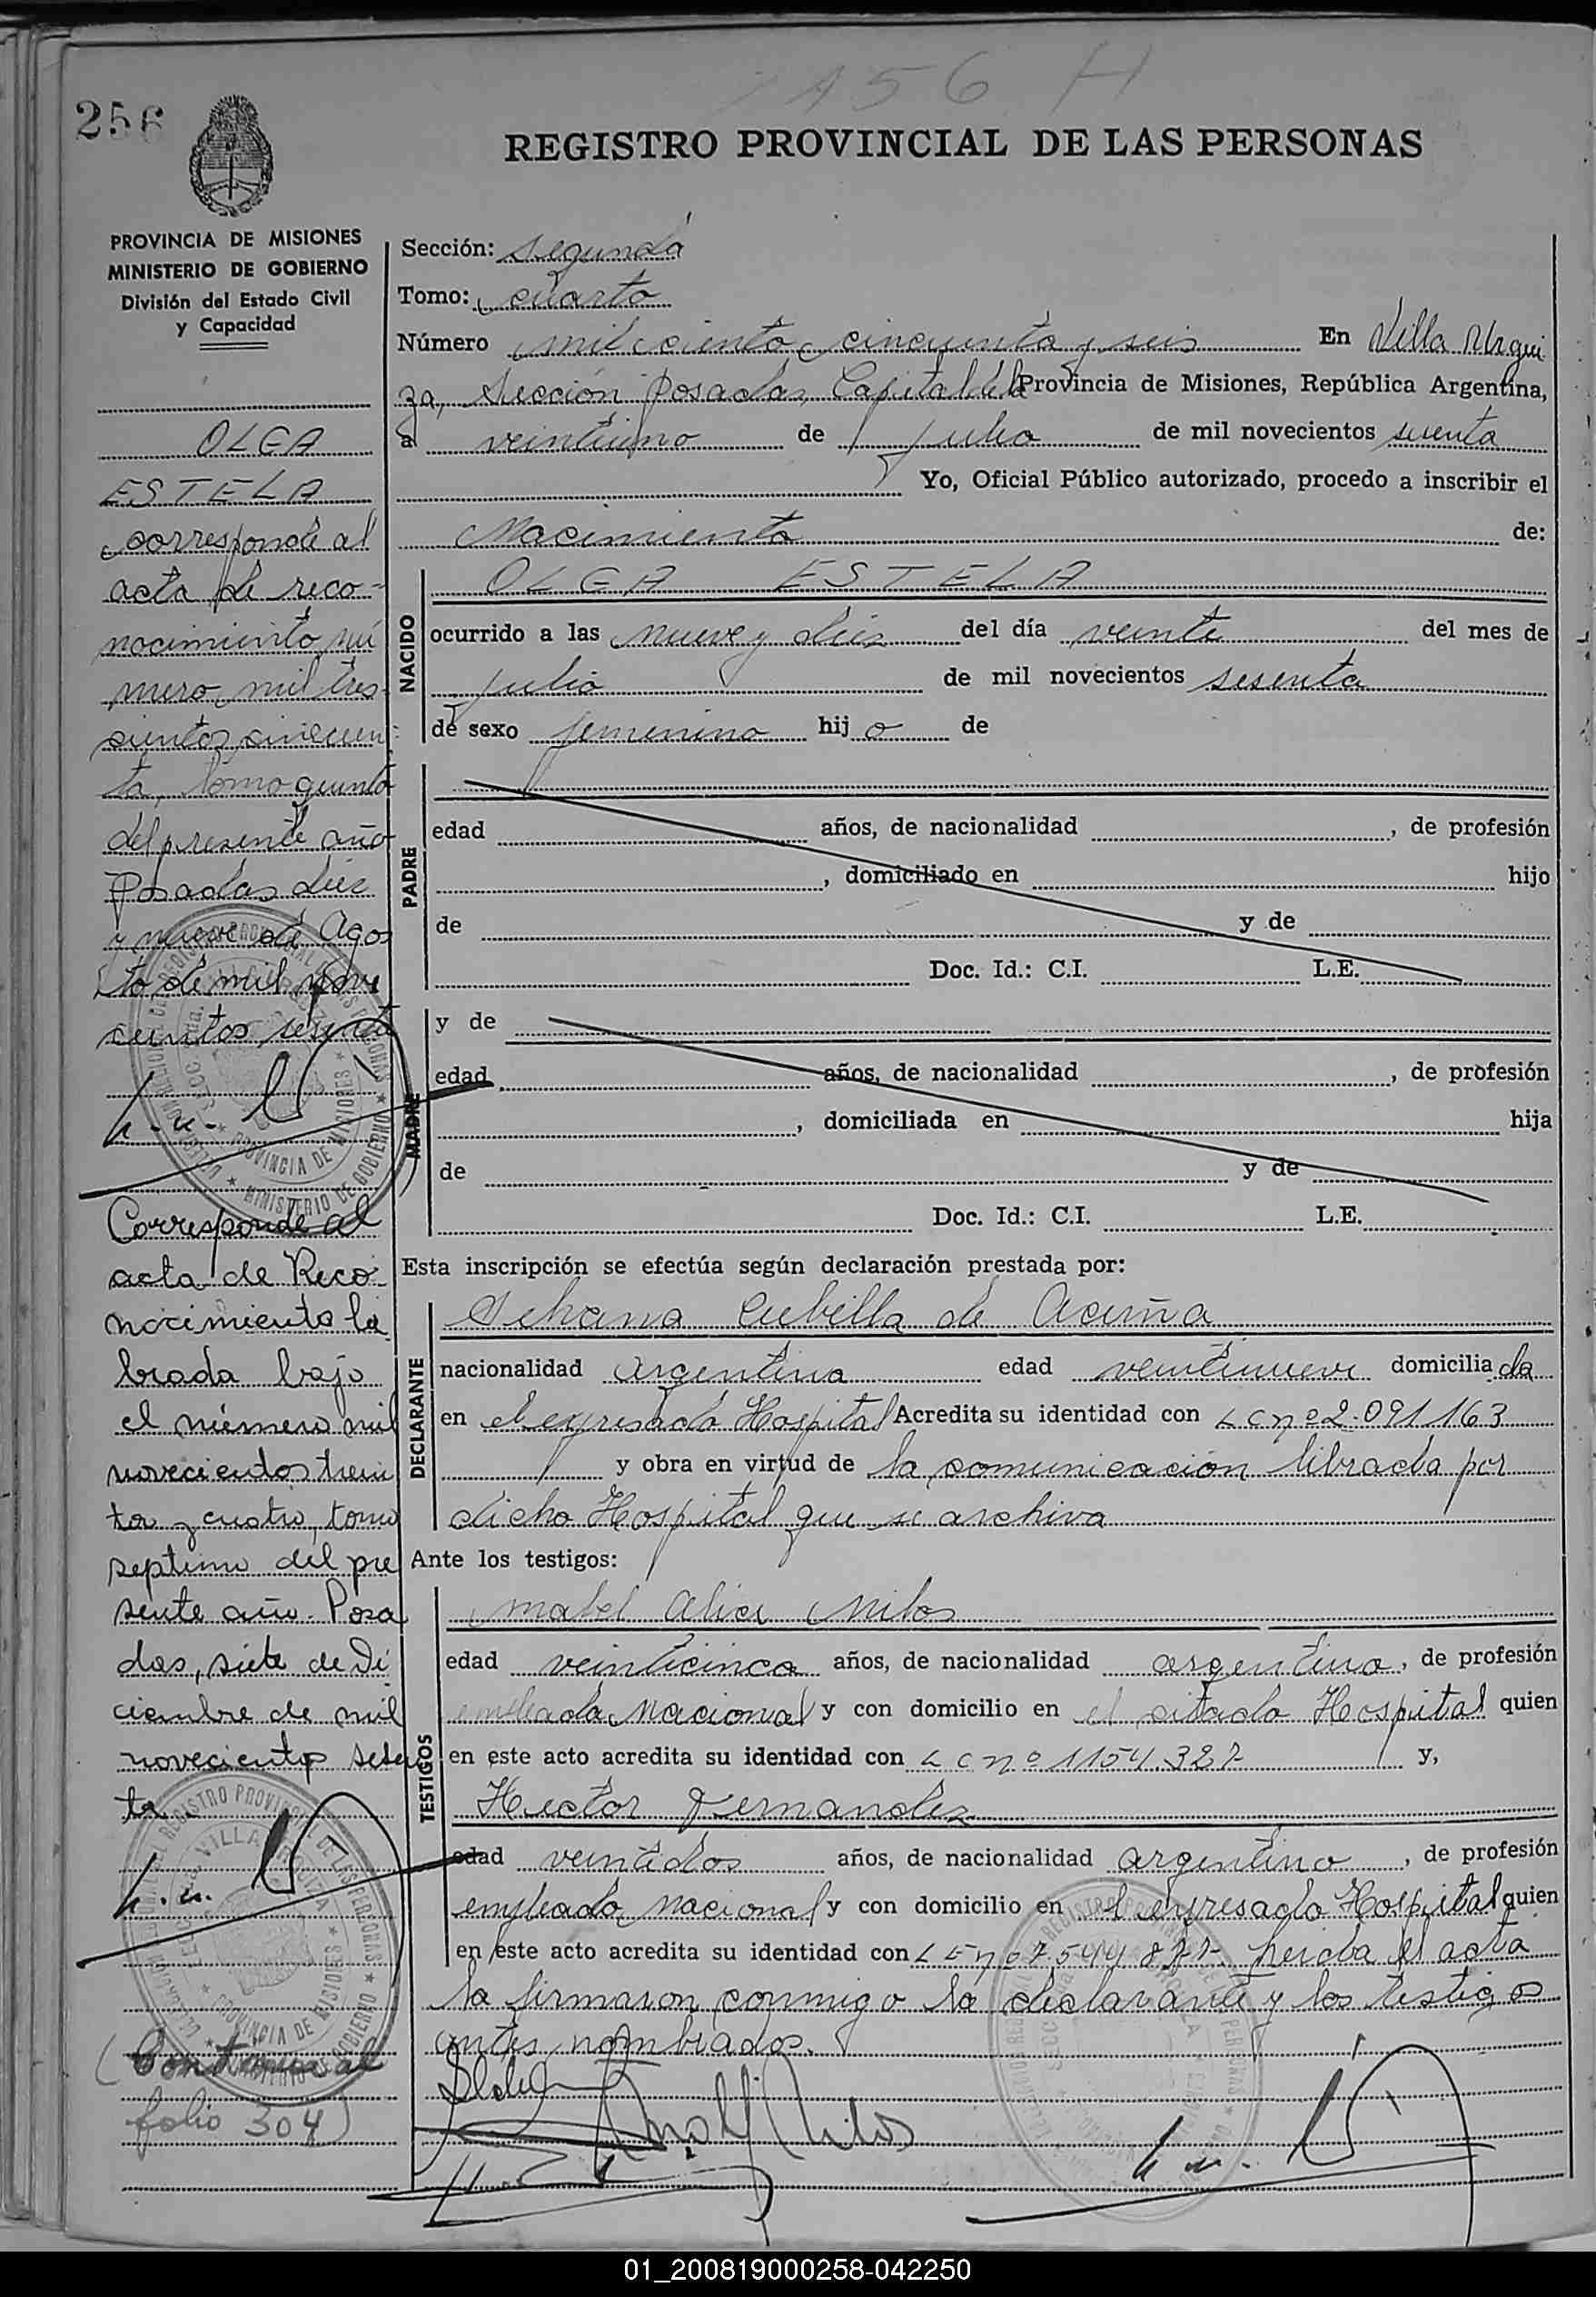 1156 H
256
REGISTRO PROVINCIAL DE LAS PERSONAS
PROVINCIA DE MISIONES
MINISTERIO DE GOBIERNO
División del Estado Civil
y Capacidad
OLGA
ESTELA
corresponde al
acta de reco-
nocimiento nú
mero mil tres
cientos cincuen
ta, tomo quinto
del presente año
Posadas diez
y nueve de Agos
to de mil nove
cientos sesenta
Corresponde al
acta de Reco
nocimiento la
brada bajo
el número mil
novecientos trein
ta y cuatro, tomo
septimo del pre
sente año. Posa
das, siete de Di
ciembre de mil
novecientos sesen
ta.
(Continua al
folio 304)
Sección: segunda
Tomo: cuarto
Número mil ciento cincuenta y seis En Villa Urqui
za, Sección Posadas, Capital de la Provincia de Misiones, República Argentina,
a veintiuno de julio de mil novecientos sesenta
Yo, Oficial Público autorizado, procedo a inscribir el
Nacimiento de:
NACIDO
OLGA ESTELA
ocurrido a las nueve y diez del día veinte del mes de
julio de mil novecientos sesenta
de sexo femenino hij o de
PADRE
edad años, de nacionalidad , de profesión
, domiciliado en hijo
de y de
Doc. Id.: C.I. L.E.
MADRE
y de
edad años, de nacionalidad , de profesión
, domiciliada en hija
de y de
Doc. Id.: C.I. L.E.
Esta inscripción se efectúa según declaración prestada por:
DECLARANTE
Cubilla de Acuña
nacionalidad argentina edad veintinueve domicilia da
en el expresado Hospital Acredita su identidad con L C nº 2.091163
y obra en virtud de la comunicación librada por
dicho Hospital que se archiva
Ante los testigos:
TESTIGOS
Mabel Alicia Milos
edad veinticinco años, de nacionalidad argentina, de profesión
empleada Nacional y con domicilio en el citado Hospital quien
en este acto acredita su identidad con L C nº 1154.327 y,
Hector Fernandez
edad veintidos años, de nacionalidad argentino, de profesión
empleado nacional y con domicilio en el expresado Hospital quien
en este acto acredita su identidad con L E nº 7.544 877. Leida el acta
la firmaron conmigo la declarante y los testigos
antes nombrados.
01_200819000258-042250